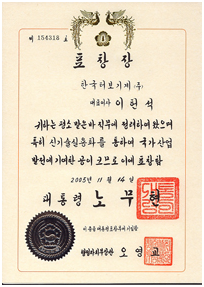 제 154318 호
표창장
한국터보기계(주)
대표이사 이헌석
귀하는 평소 맡은바 직무에 정려하여 왔으며
특히 신기술실용화를 통하여 국가산업
발전에 기여한 공이 크므로 이에 표창함
2005년 11월 14일
대통령 노무현
이 증을 대통령표창부에 기입함
행정자치부장관 오영교